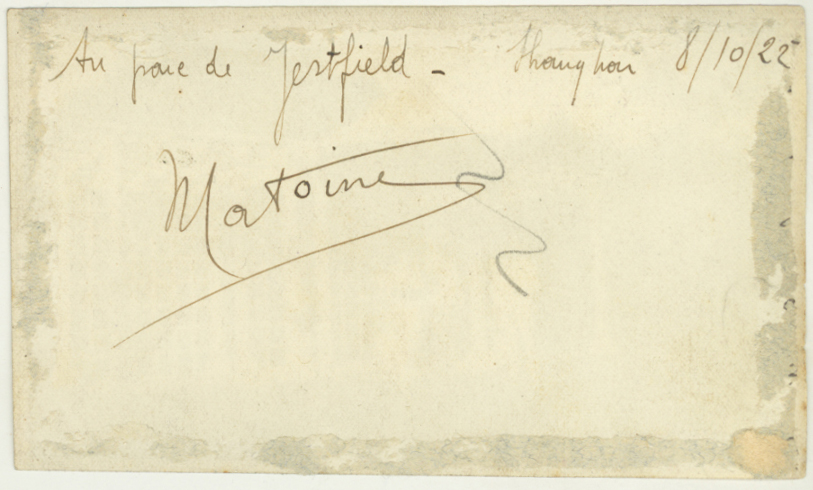 Au parc de Jessfield - Shanghai 8/10/22
Matoine